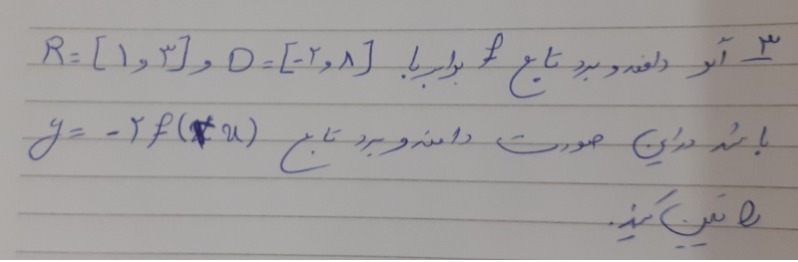 ۳ اگر دامنه و برد تابع f برابر با D=[-۲,۸] و R=[۱,۳]
باشد در این صورت دامنه و برد تابع y = -۲f(x)
را تعیین کنید.